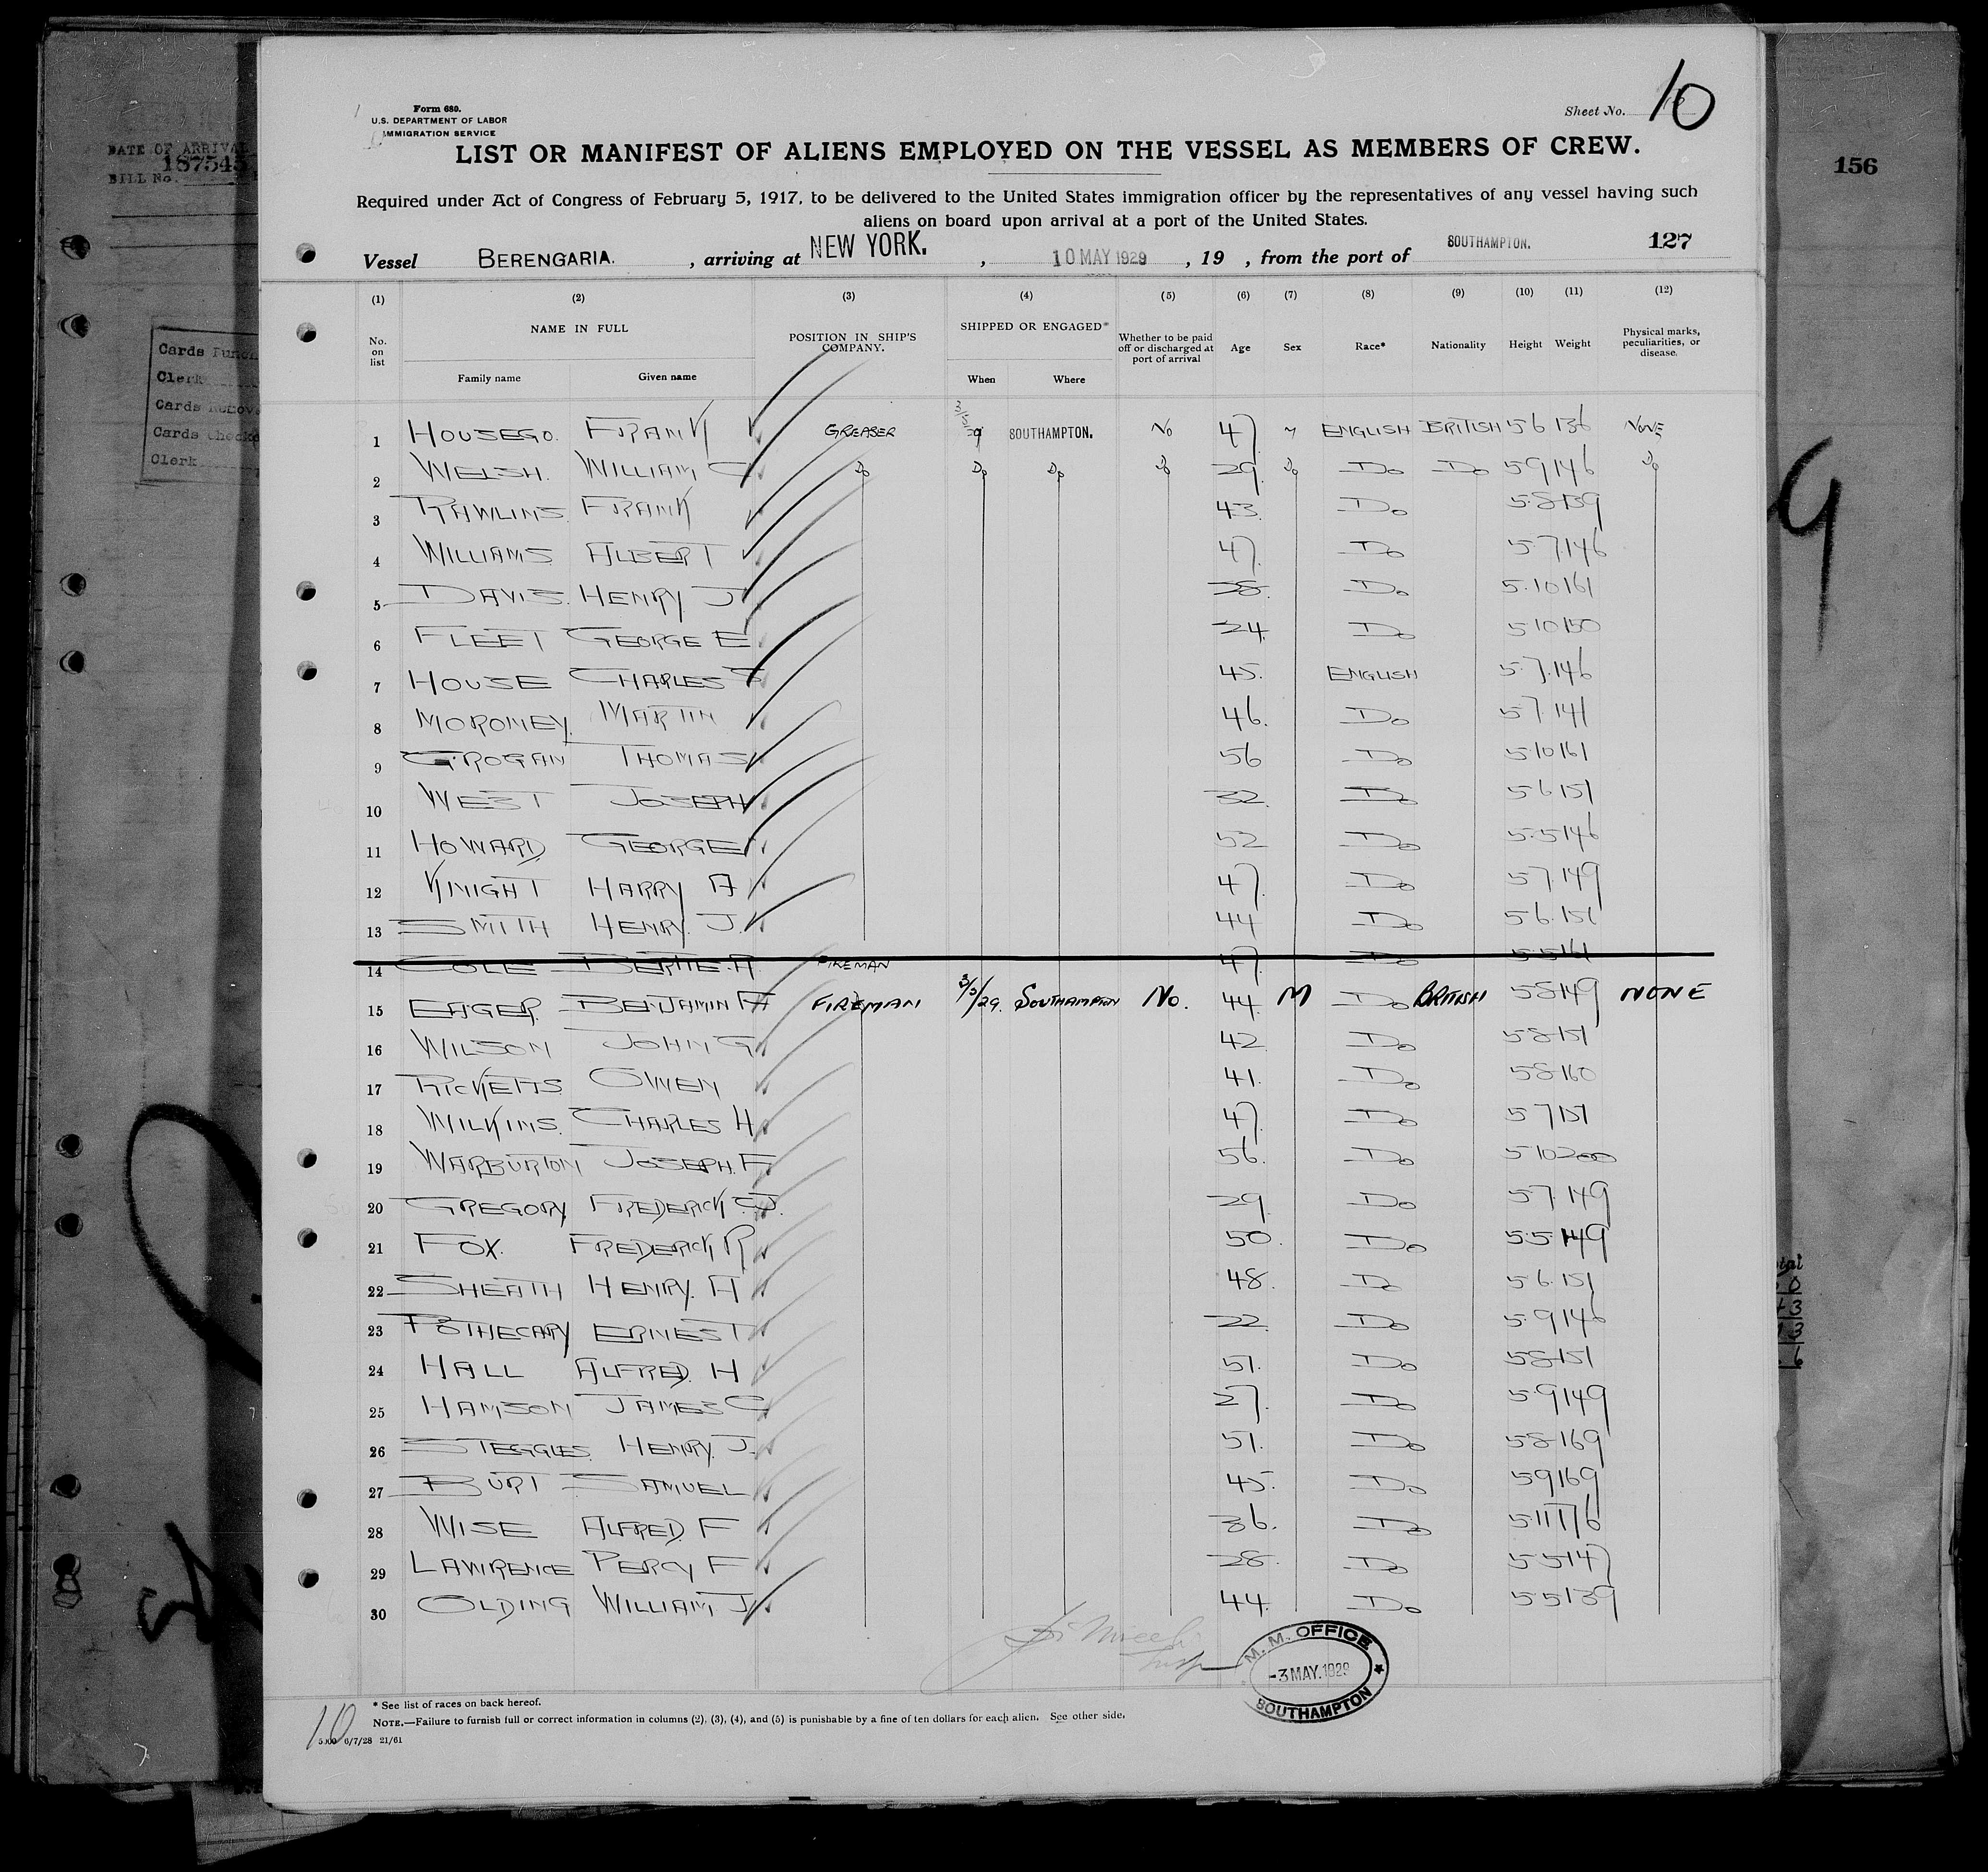 Form 680.
U.S. DEPARTMENT OF LABOR
IMMIGRATION SERVICE
Sheet No. 10
LIST OR MANIFEST OF ALIENS EMPLOYED ON THE VESSEL AS MEMBERS OF CREW.
DATE OF ARRIVAL
187545
BILL No.
156
Required under Act of Congress of February 5, 1917, to be delivered to the United States immigration officer by the representatives of any vessel having such
aliens on board upon arrival at a port of the United States.
Vessel BERENGARIA. , arriving at NEW YORK. , 10 MAY 1929 , 19 , from the port of SOUTHAMPTON. 127
(1) (2) (3) (4) (5) (6) (7) (8) (9) (10) (11) (12)
No. on list NAME IN FULL Family name Given name POSITION IN SHIP'S COMPANY. SHIPPED OR ENGAGED* When Where Whether to be paid off or discharged at port of arrival Age Sex Race* Nationality Height Weight Physical marks, peculiarities, or disease.
Cards
Clerk
Cards
Cards
Clerk
1 HOUSEGO. FRANK GREASER 3/5/29 SOUTHAMPTON. No 47 M ENGLISH BRITISH 5 6 136 NONE
2 WELSH. WILLIAM C Do Do Do Do 29 Do Do Do 5 9 146 Do
3 RAWLINS. FRANK 43. Do 5.8 139
4 WILLIAMS ALBERT 47. Do 5.7 146
5 DAVIS. HENRY J 38. Do 5.10 161
6 FLEET GEORGE E 24. Do 5 10 150
7 HOUSE CHARLES S 45. ENGLISH 5.7.146
8 MORONEY. MARTIN 46. Do 5 7.141
9 GROGAN THOMAS 56 Do 5.10 161
10 WEST JOSEPH 32. Do 5 6 151
11 HOWARD GEORGE 52 Do 5.5 146
12 KNIGHT HARRY A 47. Do 5 7 149
13 SMITH HENRY. J. 44 Do 5 6.151
14 COLE BERTIE. A FIREMAN 47. Do 5 5 161
15 EAGER. BENJAMIN A FIREMAN 3/5/29. SOUTHAMPTON No. 44. M Do BRITISH 5 8 149 NONE
16 WILSON JOHN G 42. Do 5 8 151
17 RICKETTS OWEN 41. Do 5 8 160
18 WILKINS. CHARLES H. 47. Do 5 7 151
19 WARBURTON JOSEPH. F. 56. Do 5 10 200
20 GREGORY. FREDERICK. J. 29. Do 5 7. 149
21 FOX. FREDERICK R 50. Do 5.5 149
22 SHEATH HENRY. A 48. Do 5 6.151
23 POTHECARY ERNEST 22. Do 5.9 146
24 HALL ALFRED. H 51. Do 5 8 151
25 HAMSON JAMES G 27. Do 5.9 149
26 STEGGLES. HENRY. J. 51. Do 5 8 169
27 BURT SAMUEL 45. Do 5 9 169
28 WISE ALFRED. F 36. Do 5 11 176
29 LAWRENCE PERCY F 28. Do 5 5 147
30 OLDING WILLIAM. J. 44. Do 5 5 139
M. M. OFFICE
-3 MAY. 1929
SOUTHAMPTON
* See list of races on back hereof.
10
NOTE.—Failure to furnish full or correct information in columns (2), (3), (4), and (5) is punishable by a fine of ten dollars for each alien. See other side.
5000 6/7/28 21/61